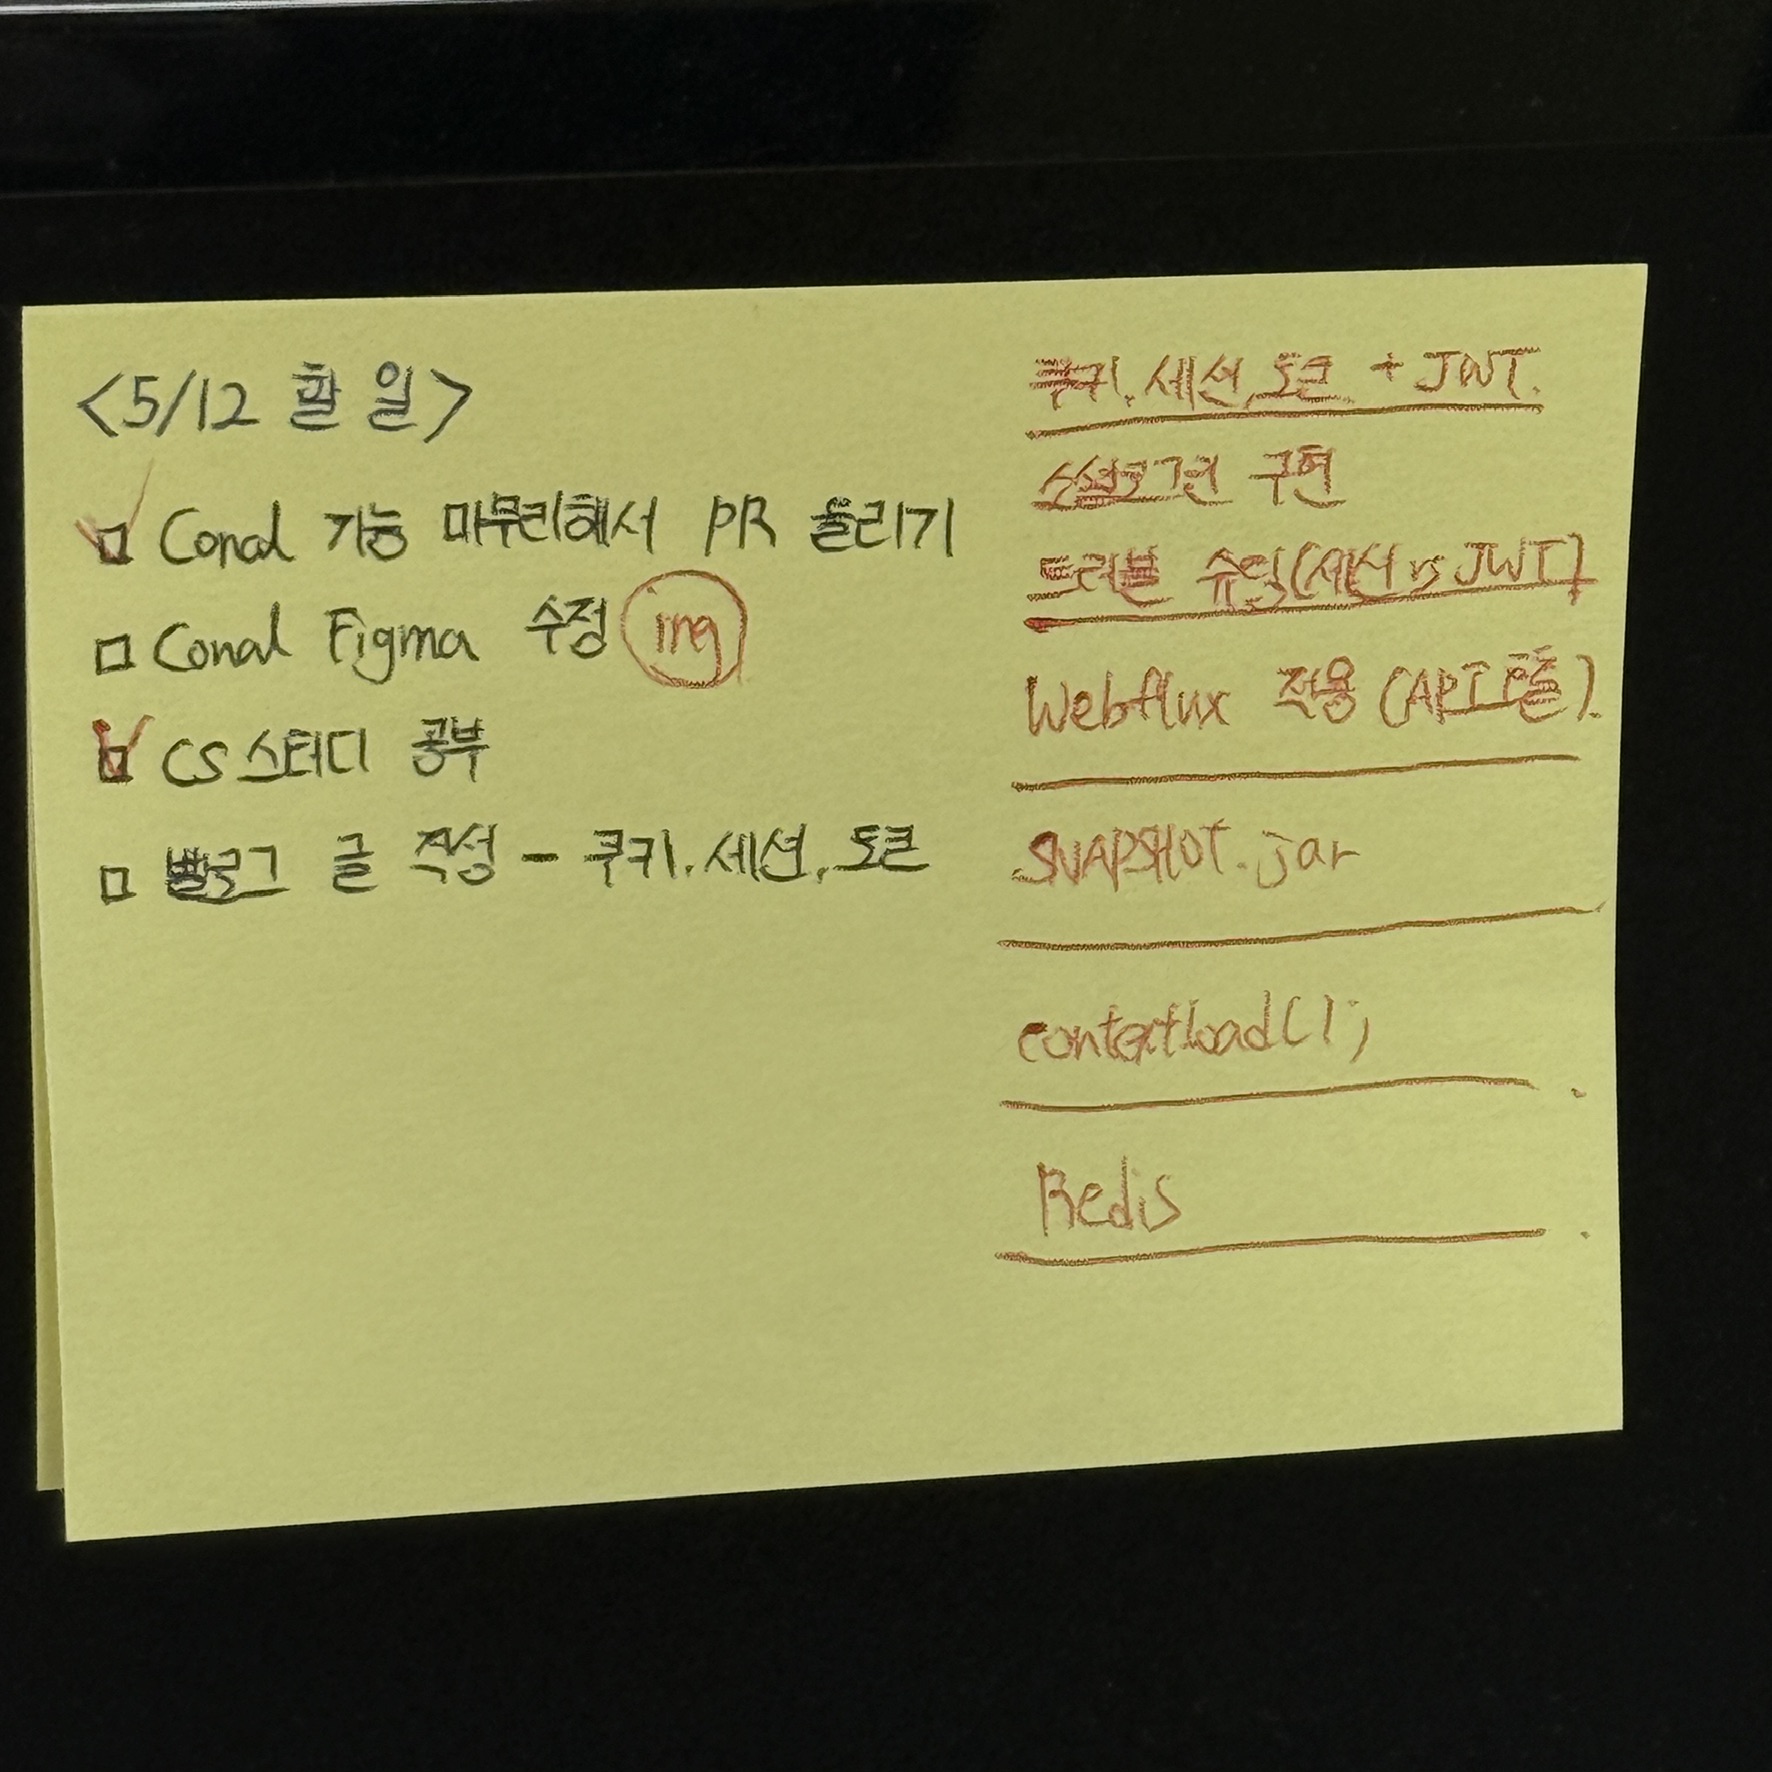 <5/12 할 일>
Conal 기능 마무리해서 PR 올리기
Conal Figma 수정 ing
CS 스터디 공부
블로그 글 작성 - 쿠키, 세션, 토큰
쿠키, 세션, 토큰 + JWT.
소셜로그인 구현
트러블 슈팅(세션 vs JWT)
Webflux 적용 (API 호출).
SNAPSHOT.jar
contextload();
Redis